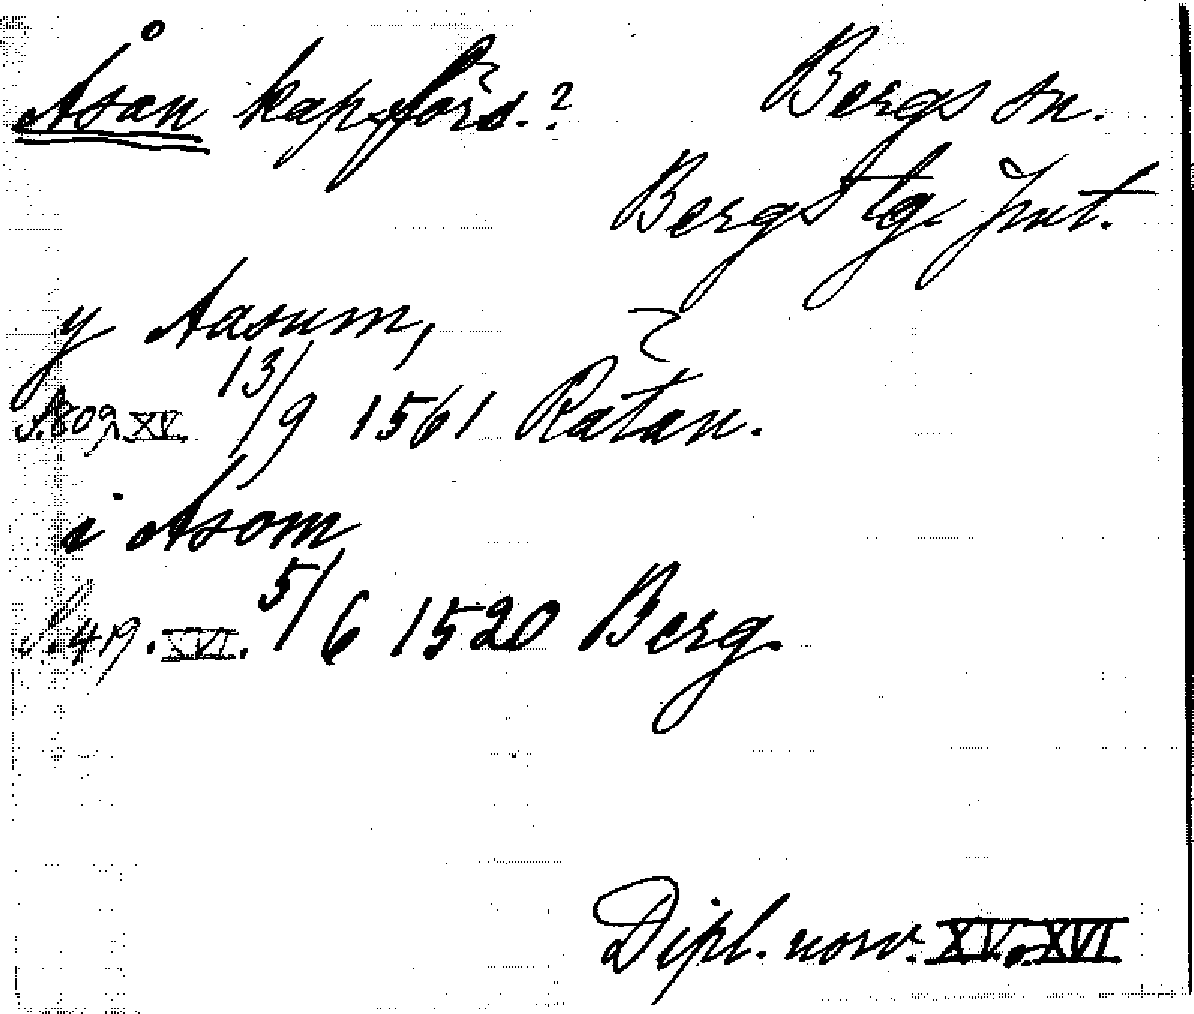 Åsan kapförs.? Bergs sn.
Bergs tg. Jmt.
y Aasum,
S.809 XV. 13/9 1561 Rätan.
i Åsom
S.419. XVI. 5/6 1520 Berg.
Dipl. norv. XV, XVI